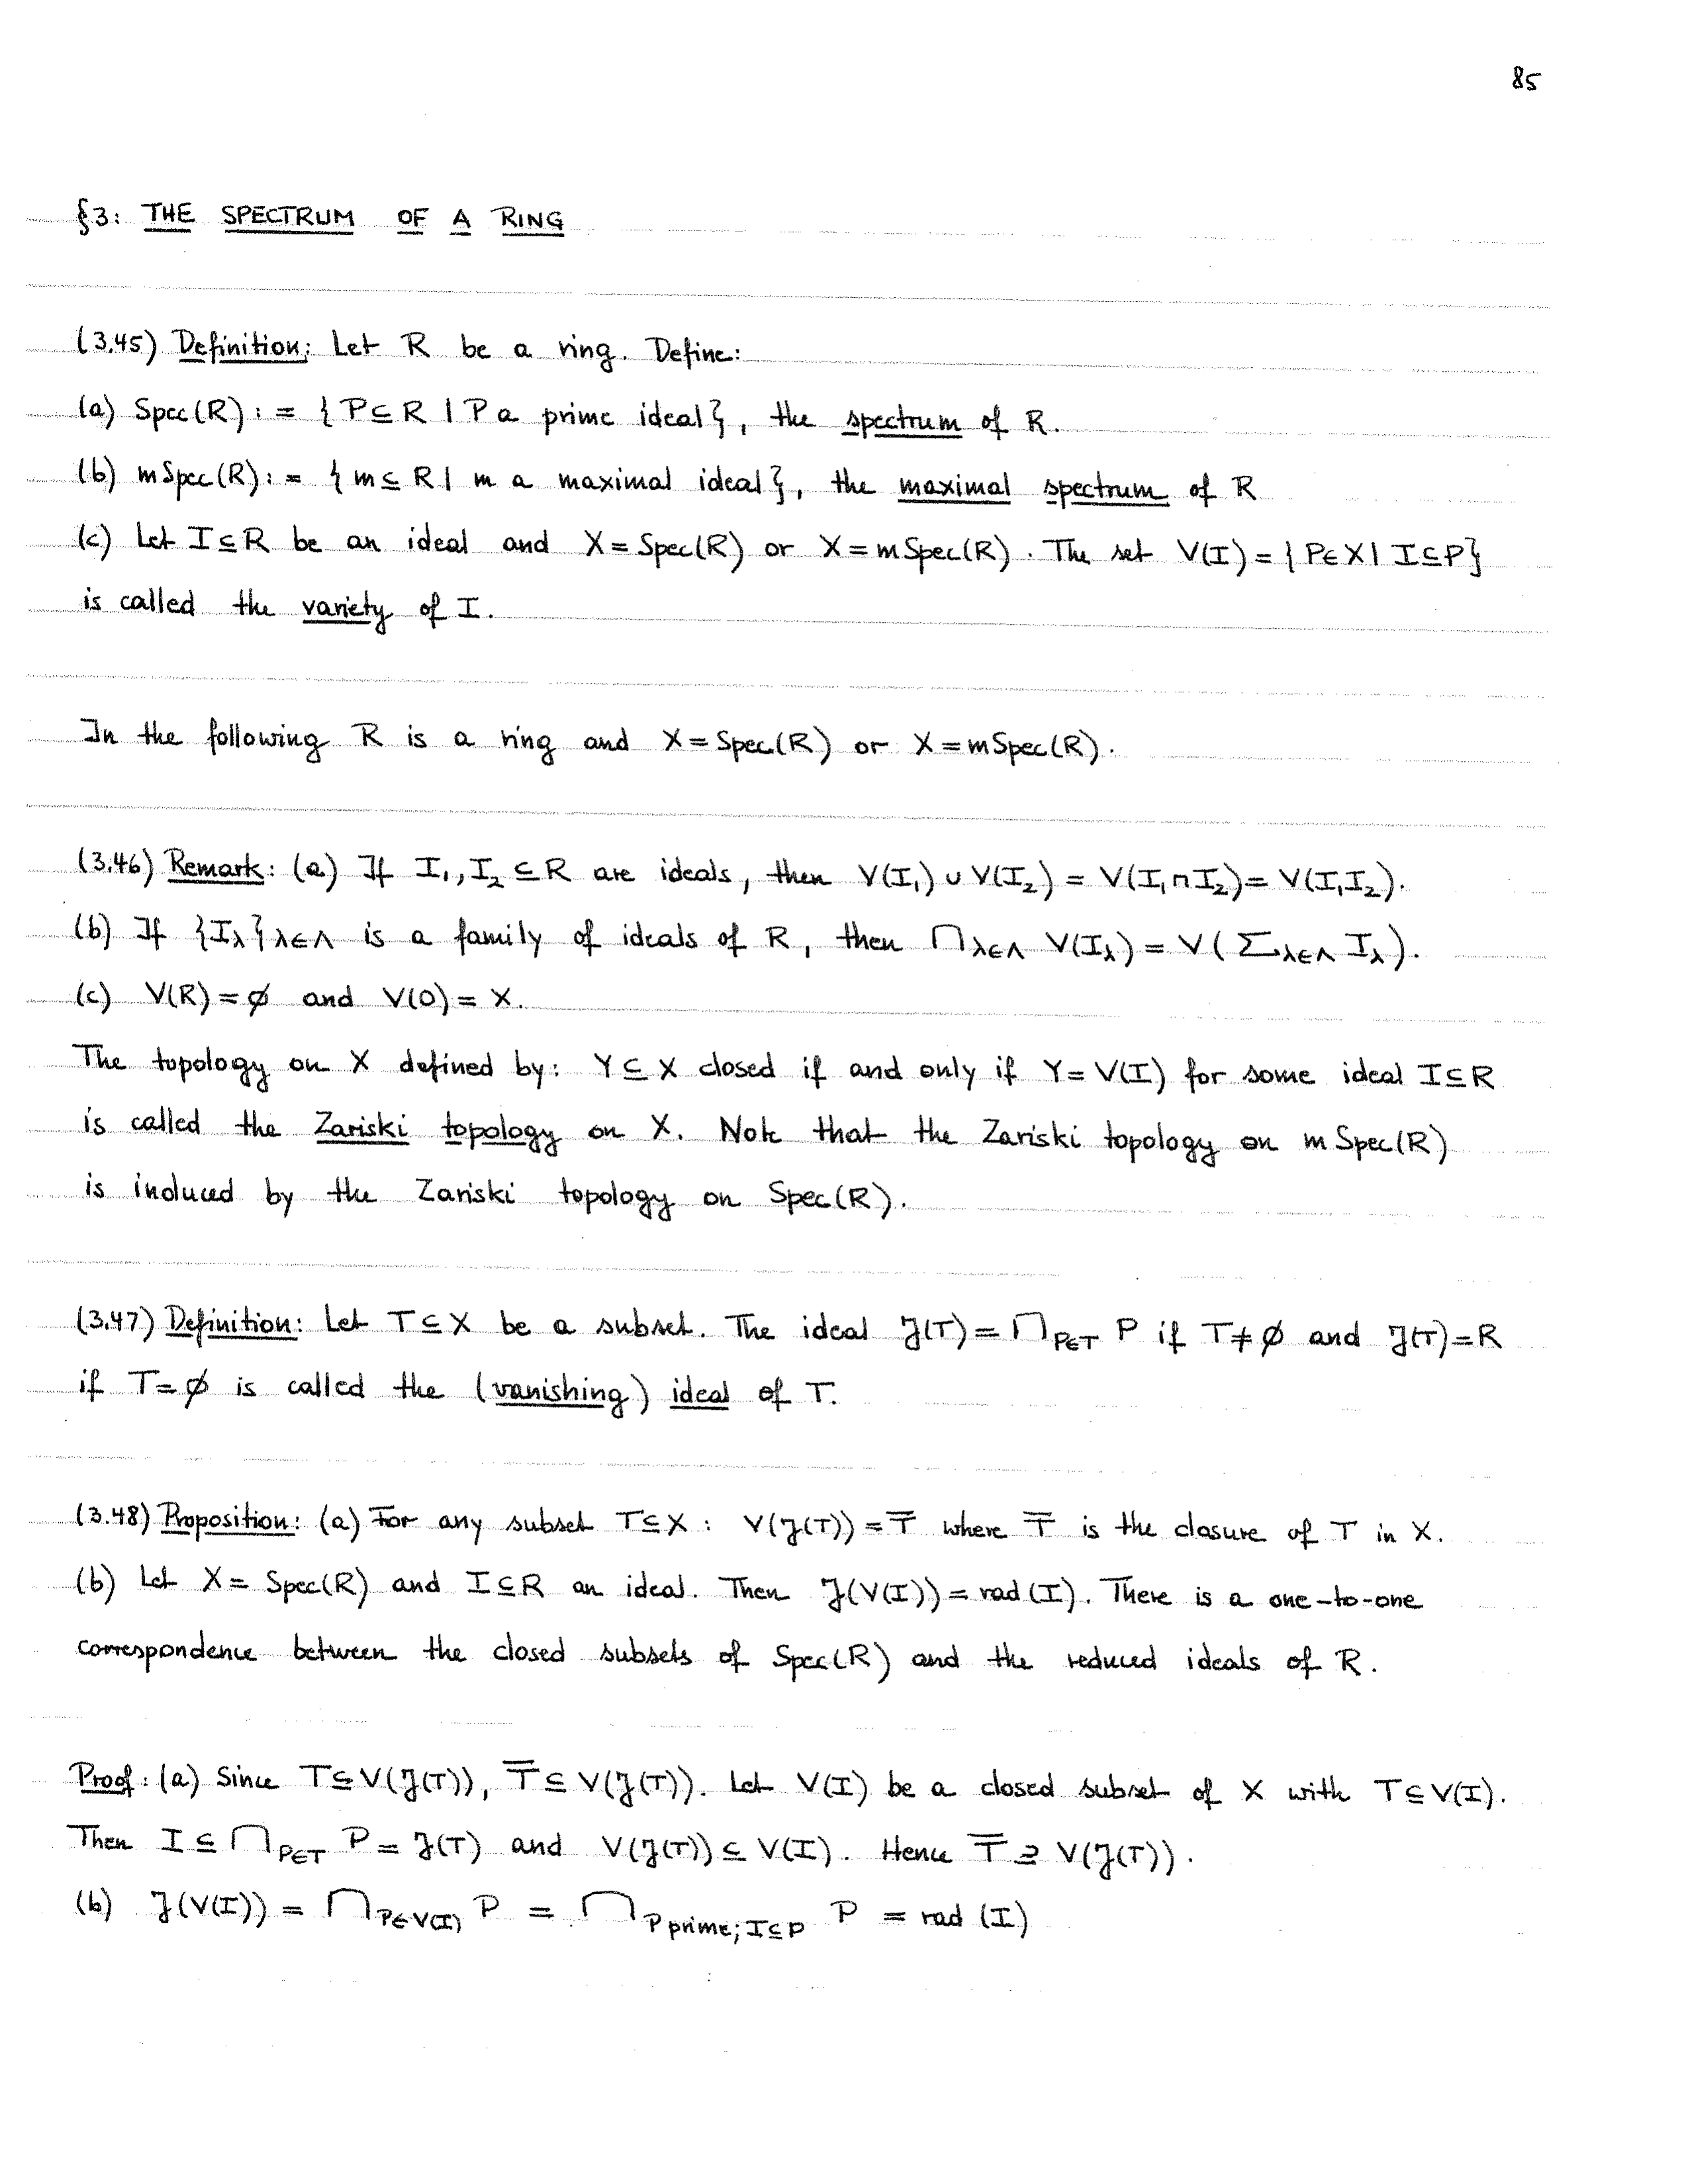 85
§3: THE SPECTRUM OF A RING
(3.45) Definition: Let R be a ring. Define:
(a) Spec(R) := {P ⊆ R | P a prime ideal}, the spectrum of R.
(b) mSpec(R) := {m ⊆ R | m a maximal ideal}, the maximal spectrum of R
(c) Let I ⊆ R be an ideal and X = Spec(R) or X = mSpec(R). The set V(I) = {P ∈ X | I ⊆ P}
is called the variety of I.
In the following R is a ring and X = Spec(R) or X = mSpec(R).
(3.46) Remark: (a) If I₁, I₂ ⊆ R are ideals, then V(I₁) ∪ V(I₂) = V(I₁ ∩ I₂) = V(I₁I₂).
(b) If {I_λ}_λ∈Λ is a family of ideals of R, then ⋂_λ∈Λ V(I_λ) = V(∑_λ∈Λ I_λ).
(c) V(R) = ∅ and V(0) = X.
The topology on X defined by: Y ⊆ X closed if and only if Y = V(I) for some ideal I ⊆ R
is called the Zariski topology on X. Note that the Zariski topology on mSpec(R)
is induced by the Zariski topology on Spec(R).
(3.47) Definition: Let T ⊆ X be a subset. The ideal J(T) = ⋂_P∈T P if T ≠ ∅ and J(T) = R
if T = ∅ is called the (vanishing) ideal of T.
(3.48) Proposition: (a) For any subset T ⊆ X : V(J(T)) = T̅ where T̅ is the closure of T in X.
(b) Let X = Spec(R) and I ⊆ R an ideal. Then J(V(I)) = rad(I). There is a one-to-one
correspondence between the closed subsets of Spec(R) and the reduced ideals of R.
Proof: (a) Since T ⊆ V(J(T)), T̅ ⊆ V(J(T)). Let V(I) be a closed subset of X with T ⊆ V(I).
Then I ⊆ ⋂_P∈T P = J(T) and V(J(T)) ⊆ V(I). Hence T̅ ⊇ V(J(T)).
(b) J(V(I)) = ⋂_P∈V(I) P = ⋂_P prime; I⊆P P = rad(I)